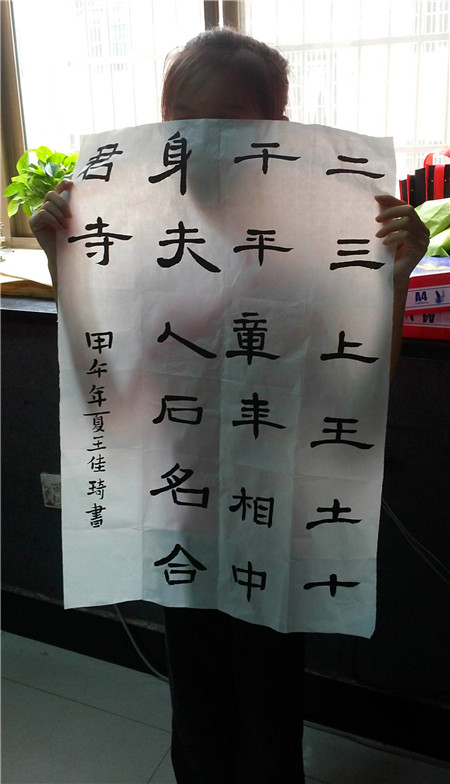 二三上王土十
干平章年相中
身夫人石名合
君寺
甲午年夏王佳琦書
A4